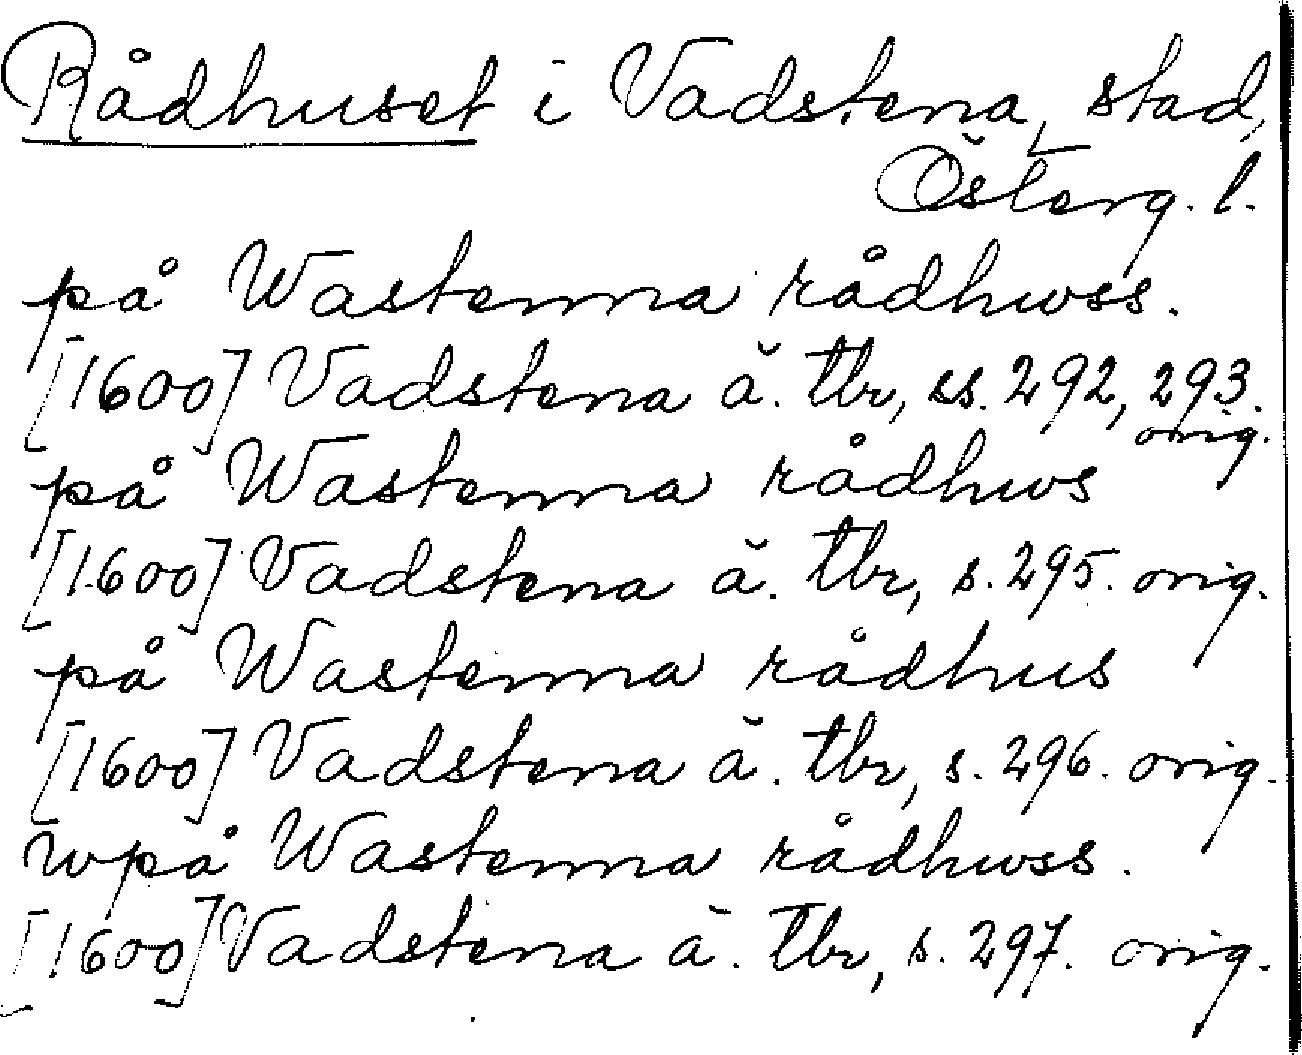 Rådhuset i Vadstena, stad,
Österg. l.
på Wastenna rådhwss.
[1600] Vadstena ä. tbr, ss. 292, 293.
orig.
på Wastenna rådhws
[1600] Vadstena ä. tbr, s. 295. orig.
på Wastenna rådhus
[1600] Vadstena ä. tbr, s. 296. orig.
wpå Wastenna rådhwss.
[1600] Vadstena ä. tbr, s. 297. orig.